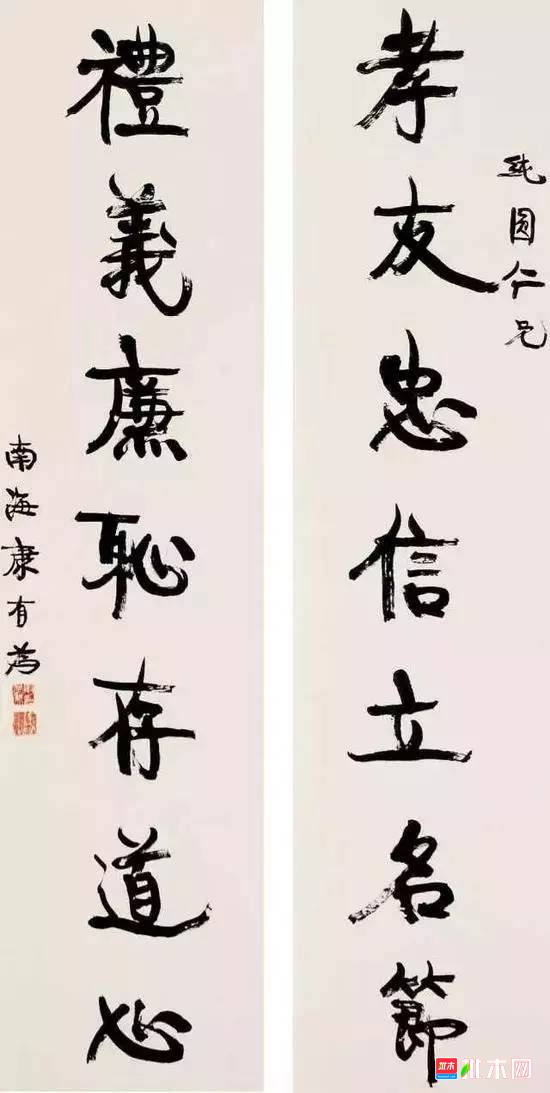 純圓仁兄
孝友忠信立名節
禮義廉恥存道心
南海康有為
北木网